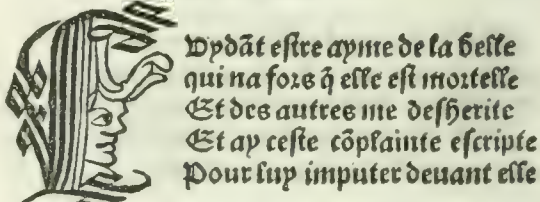 Cuydãt estre ayme de la belle
qui na fors q̃ elle est mortelle
Et des autres me desherite
Et ay ceste cõplainte escripte
Pour luy imputer deuant elle